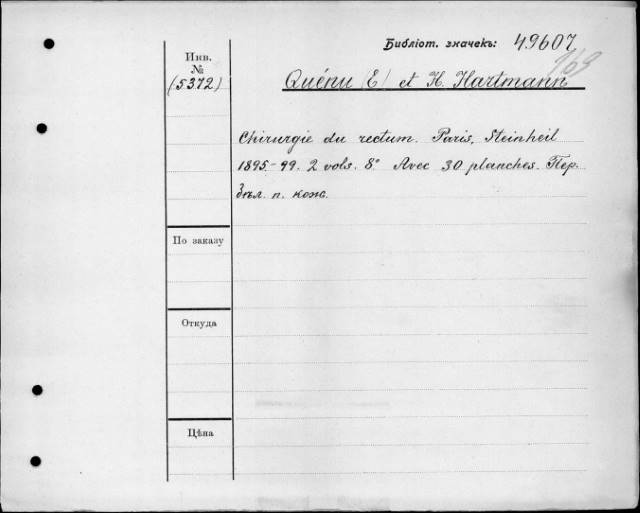 Библіот. значекъ: 49607
169
Инв.
№
(5372)
Quénu (E) et H. Hartmann
Chirurgie du rectum. Paris, Steinheil
1895-99. 2 vols. 8° Avec 30 planches. Пер.
Зъл. п. кож.
По заказу
Откуда
Цѣна